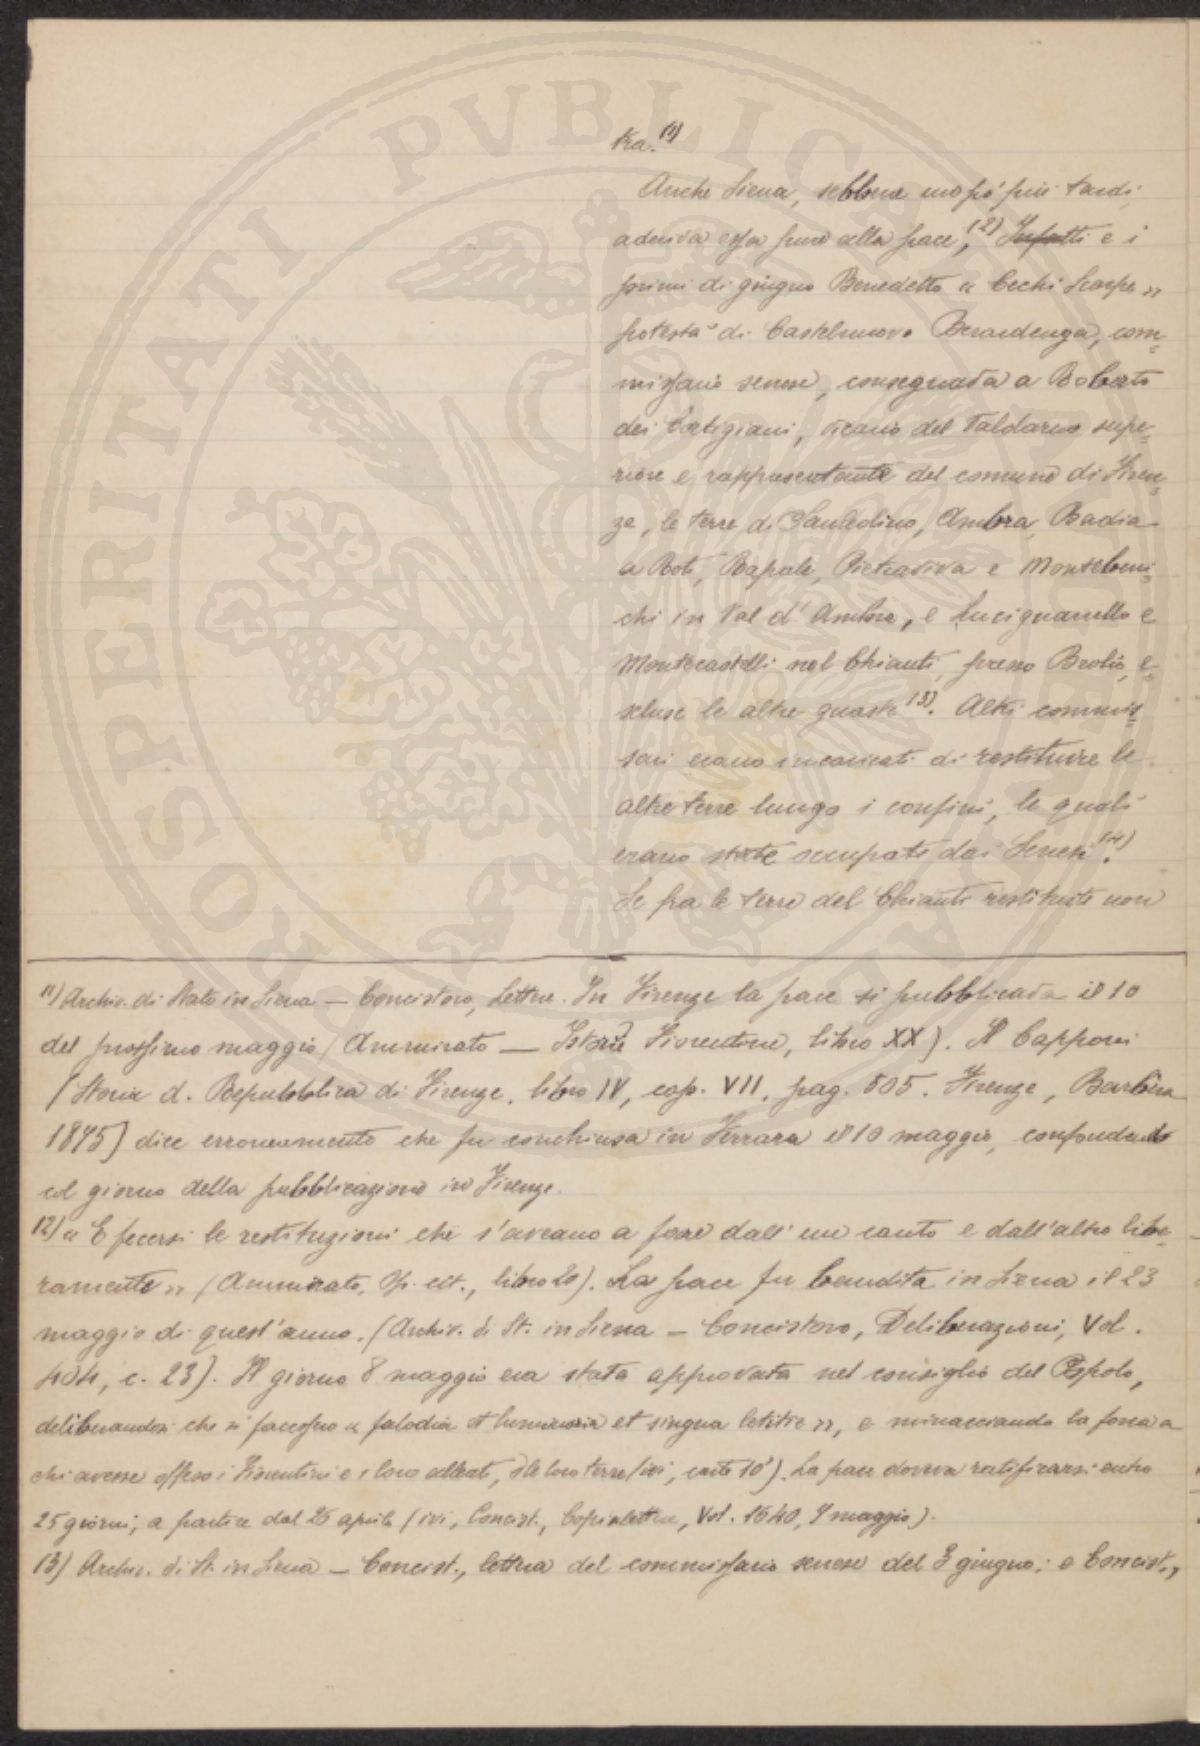 tra. (1)
Anche Siena, sebbene un po' più tardi,
aderiva essa pure alla pace, (2) Infatti e i
primi di giugno Benedetto « Cechi Scarpe »
potestà di Castelnuovo Berardenga, com=
missario senese, consegnava a Roberto
dei Cortigiani, vicario del Valdarno supe=
riore e rappresentante del comune di Firen=
ze, le terre di San Leolino, Ambra, Badia
a Roti, Rapale, Pietraviva e Montebeni=
chi in Val d'Ambra, e Lucignanello e
Montecastelli nel Chianti, presso Brolio, e=
scluse le altre guaste (3). Altri commis=
sari erano incaricati di restituire le
altre terre lungo i confini, le quali
erano state occupate dai Senesi (4).
Se fra le terre del Chianti restituite non
(1) Archiv. di Stato in Siena — Concistoro, Lettere. In Firenze la pace si pubblicava il 10
del prossimo maggio (Ammirato — Istorie Fiorentine, libro XX). Il Capponi
(Storia d. Repubblica di Firenze, libro IV, cap. VII, pag. 505. Firenze, Barbèra
1875) dice erroneamente che fu conchiusa in Ferrara il 10 maggio, confondendo
col giorno della pubblicazione in Firenze.
(2) « E fecersi le restituzioni che s'aveano a fare dall'un canto e dall'altro libe=
ramente » (Ammirato, Op. cit., libro 20). La pace fu bandita in Siena il 23
maggio di quest'anno. (Archiv. di St. in Siena — Concistoro, Deliberazioni, Vol.
404, c. 23). Il giorno 8 maggio era stata approvata nel consiglio del Popolo,
deliberandosi che si facessero « falodia et luminaria et singna letitie », e minacciando la forca a
chi avesse offeso i Fiorentini e i loro alleati, o le loro terre (ivi, carte 10'). La pace doveva ratificarsi entro
25 giorni, a partire dal 26 aprile (ivi, Concist., Copialettere, Vol. 1640, 9 maggio).
(3) Archiv. di St. in Siena — Concist., lettera del commissario senese del 3 giugno; e Concist.,
PROSPERITATI PVBLICAE